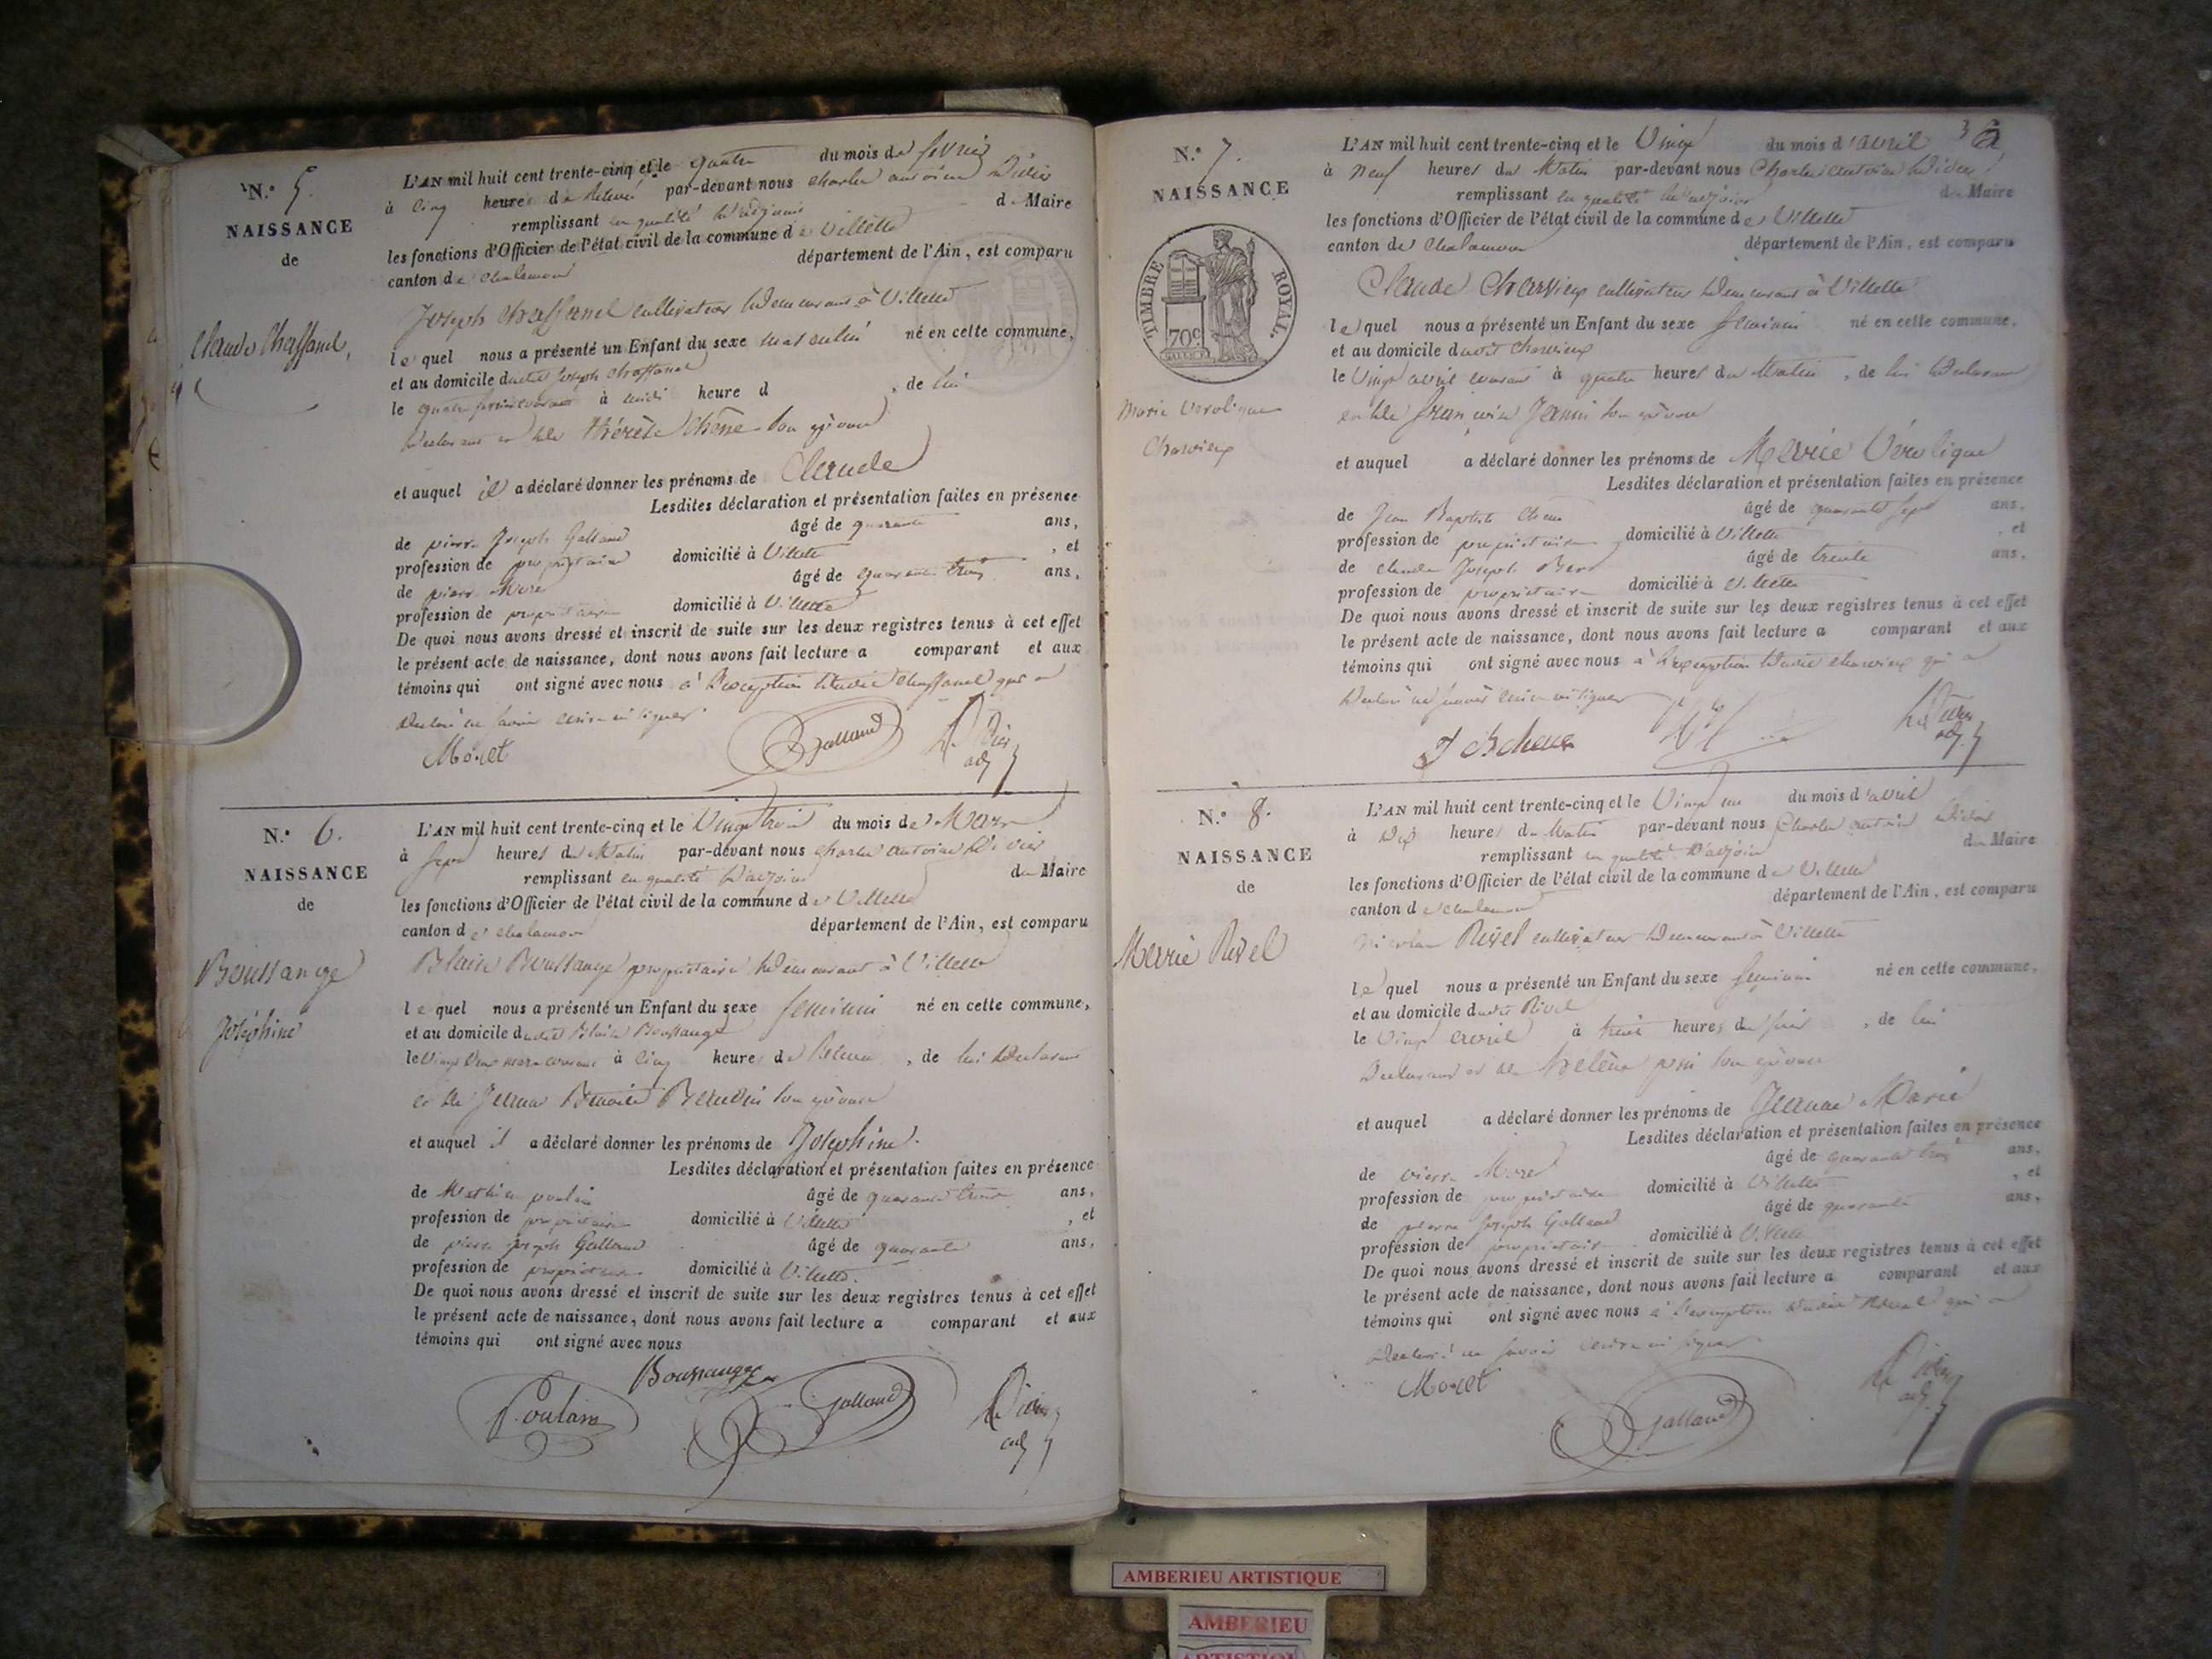 N.º 5.
NAISSANCE
de
Claude Chaffanel,
L'AN mil huit cent trente-cinq et le quatre du mois de fevrier
à cinq heures de par-devant nous Charles antoine Didier
remplissant en qualité d'adjoint d Maire
les fonctions d'Officier de l'état civil de la commune de Villette
canton de chalamont département de l'Ain, est comparu
Joseph Chaffanel cultivateur demeurant à Villette
lequel nous a présenté un Enfant du sexe masculin né en cette commune,
et au domicile dudit Joseph Chaffanel
le quatre fevrier courant à midi heure d , de lui
declarant et de thérèse Chêne son épouse
et auquel il a déclaré donner les prénoms de Claude
Lesdites déclaration et présentation faites en présence
de pierre Joseph Galland âgé de quarante ans,
profession de proprietaire domicilié à Villette , et
de pierre Moret âgé de quarante trois ans,
profession de proprietaire domicilié à Villette
De quoi nous avons dressé et inscrit de suite sur les deux registres tenus à cet effet
le présent acte de naissance, dont nous avons fait lecture a comparant et aux
témoins qui ont signé avec nous à l'exception dudit Chaffanel qui a
declaré ne savoir ecrire ni signer
Moret Galland Didier adj
N.º 6.
NAISSANCE
de
Boussange
Joséphine
L'AN mil huit cent trente-cinq et le Vingt trois du mois de Mars
à sept heures du Matin par-devant nous Charles antoine Didier
remplissant en qualité d'adjoint du Maire
les fonctions d'Officier de l'état civil de la commune de Villette
canton de chalamont département de l'Ain, est comparu
Blaise Boussange proprietaire demeurant à Villette
lequel nous a présenté un Enfant du sexe feminin né en cette commune,
et au domicile dudit Blaise Boussange
le Vingt Deux mars courant à cinq heures de , de lui declarant
et de Jeanne Benoite son épouse
et auquel il a déclaré donner les prénoms de Josephine.
Lesdites déclaration et présentation faites en présence
de Mathieu poulain âgé de quarante trois ans,
profession de proprietaire domicilié à Villette , et
de pierre joseph Galland âgé de quarante ans,
profession de proprietaire domicilié à Villette.
De quoi nous avons dressé et inscrit de suite sur les deux registres tenus à cet effet
le présent acte de naissance, dont nous avons fait lecture a comparant et aux
témoins qui ont signé avec nous
Boussange
Poulain Galland Didier adj
3
N.º 7.
NAISSANCE
TIMBRE ROYAL.
70c
Marie
Charvieux
L'AN mil huit cent trente-cinq et le Vingt du mois d'avril
à neuf heures du Matin par-devant nous Charles antoine Didier
remplissant en qualité d'adjoint du Maire
les fonctions d'Officier de l'état civil de la commune de Villette
canton de chalamont département de l'Ain, est comparu
Claude Charvieux cultivateur demeurant à Villette
lequel nous a présenté un Enfant du sexe feminin né en cette commune,
et au domicile dudit Charvieux
le Vingt avril courant à quatre heures du Matin , de lui declarant
et de Jeanin son épouse
et auquel a déclaré donner les prénoms de Marie
Lesdites déclaration et présentation faites en présence
de Jean Baptiste âgé de quarante sept ans,
profession de proprietaire domicilié à Villette , et
de claude Joseph âgé de trente ans,
profession de proprietaire domicilié à Villette
De quoi nous avons dressé et inscrit de suite sur les deux registres tenus à cet effet
le présent acte de naissance, dont nous avons fait lecture a comparant et aux
témoins qui ont signé avec nous à l'exception dudit Charvieux qui a
declaré ne savoir ecrire ni signer
Didier adj
N.º 8.
NAISSANCE
de
Marie Rivel
L'AN mil huit cent trente-cinq et le Vingt un du mois d'avril
à Dix heures du Matin par-devant nous Charles antoine Didier
remplissant en qualité d'adjoint du Maire
les fonctions d'Officier de l'état civil de la commune de Villette
canton de chalamont département de l'Ain, est comparu
nicolas Rivel cultivateur demeurant à Villette
lequel nous a présenté un Enfant du sexe feminin né en cette commune,
et au domicile dudit Rivel
le Vingt avril à heures du soir , de lui
declarant et de helène son épouse
et auquel a déclaré donner les prénoms de Jeanne Marie
Lesdites déclaration et présentation faites en présence
de pierre Moret âgé de quarante trois ans,
profession de proprietaire domicilié à Villette , et
de pierre Joseph Galland âgé de quarante ans,
profession de proprietaire domicilié à Villette
De quoi nous avons dressé et inscrit de suite sur les deux registres tenus à cet effet
le présent acte de naissance, dont nous avons fait lecture a comparant et aux
témoins qui ont signé avec nous à l'exception dudit Rivel qui a
declaré ne savoir ecrire ni signer
Moret Galland Didier adj
AMBERIEU ARTISTIQUE
AMBERIEU
ARTISTIQUE